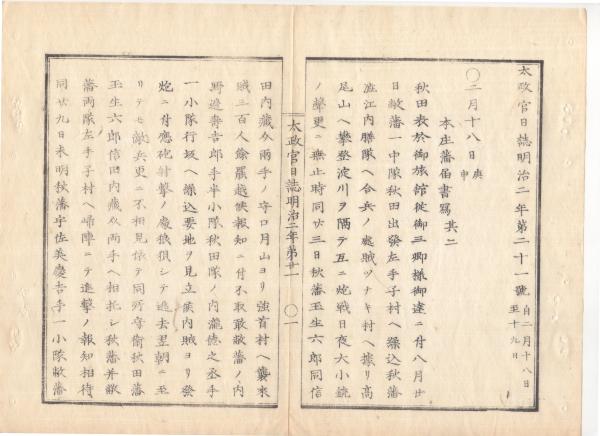 太政官日誌明治二年第二十一號 自二月十八日 至十九日
○二月十八日 庚申
本庄藩届書寫 其二
秋田表於御旅館從御三卿様御達ニ付八月廿
日敝藩一中隊秋田出發左手子村ヘ繰込秋藩
澁江内膳隊ヘ合兵ノ處賊ツナキ村ヘ據リ高
尾山ヘ攀登淀川ヲ隔テ互ニ炮戰日夜大小銃
ノ聲更ニ無止時同廿三日秋藩玉生六郎同信
太政官日誌明治二年第廿一 ○一
田内藏今兩手ノ守口月山ヨリ強首村ヘ襲來
賊三百人餘罷越候報知ニ付不取敢敝藩ノ内
野邊青吉郎手半小隊秋田隊ノ内瀧德之丞手
一小隊行坂ヘ繰込要地ヲ見立候内賊ヨリ發
炮ニ付應砲射撃ノ處狼狽シテ逃去翌朝ニ至
リテモ敵兵更ニ不相見依テ同所守衛秋田藩
玉生六郎信田内藏今兩手ヘ相托シ秋藩并敝
藩兩隊左手子村ヘ歸陣ニテ進撃ノ報知相待
同廿九日未明秋藩宇佐美慶吉手一小隊敝藩